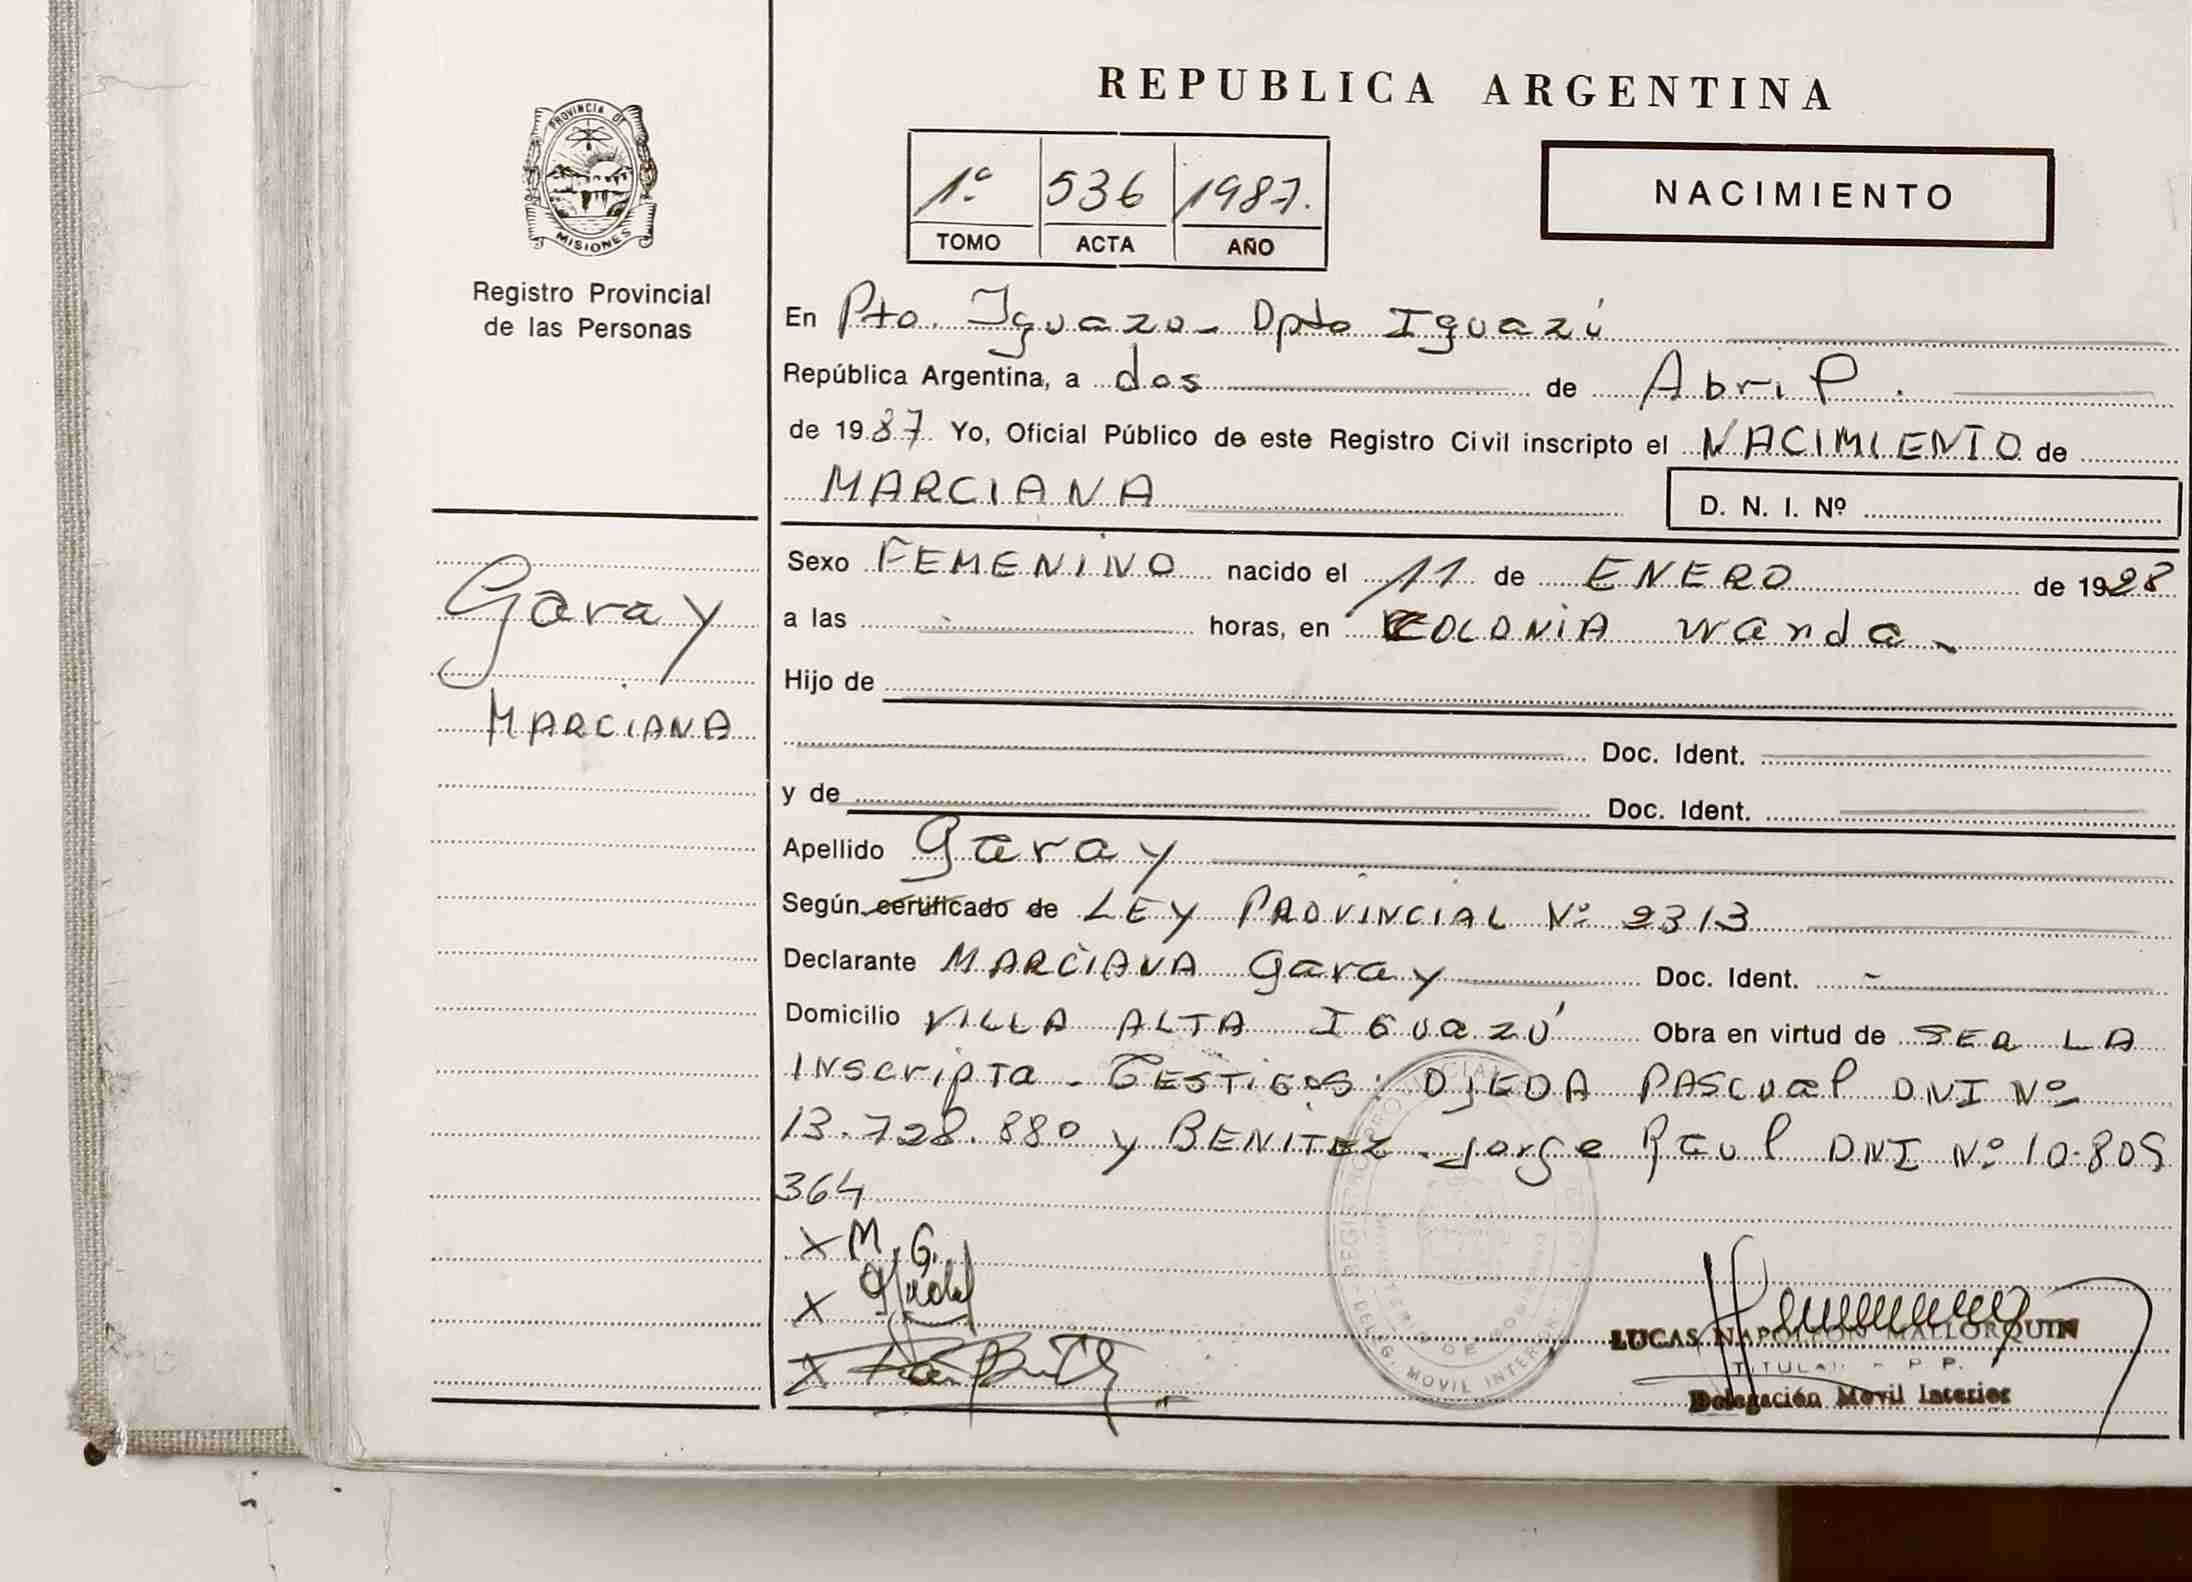 REPUBLICA ARGENTINA
PROVINCIA DE
MISIONES
Registro Provincial
de las Personas
1º 536 1987.
TOMO ACTA AÑO
NACIMIENTO
En Pto. Iguazu - Dpto Iguazú
República Argentina, a dos de Abril.
de 1987 Yo, Oficial Público de este Registro Civil inscripto el NACIMIENTO de
MARCIANA D. N. I. Nº
Garay
MARCIANA
Sexo FEMENINO nacido el 11 de ENERO de 1928
a las horas, en COLONIA Wanda -
Hijo de
Doc. Ident.
y de Doc. Ident.
Apellido Garay
Según certificado de LEY PROVINCIAL Nº 2313
Declarante MARCIANA Garay Doc. Ident. -
Domicilio VILLA ALTA IGUAZÚ Obra en virtud de SER LA
INScripTa - TESTIGOS: OJEDA PASCUAL DNI Nº
13.728.880 y BENITEZ Jorge Raul DNI Nº 10.809
364
X M. G.
X
X
REGISTRO PROVINCIAL
DELEG. MOVIL INTERIOR
LUCAS NAPOLEON MALLORQUIN
TITULAR - P.P.
Delegación Movil Interior